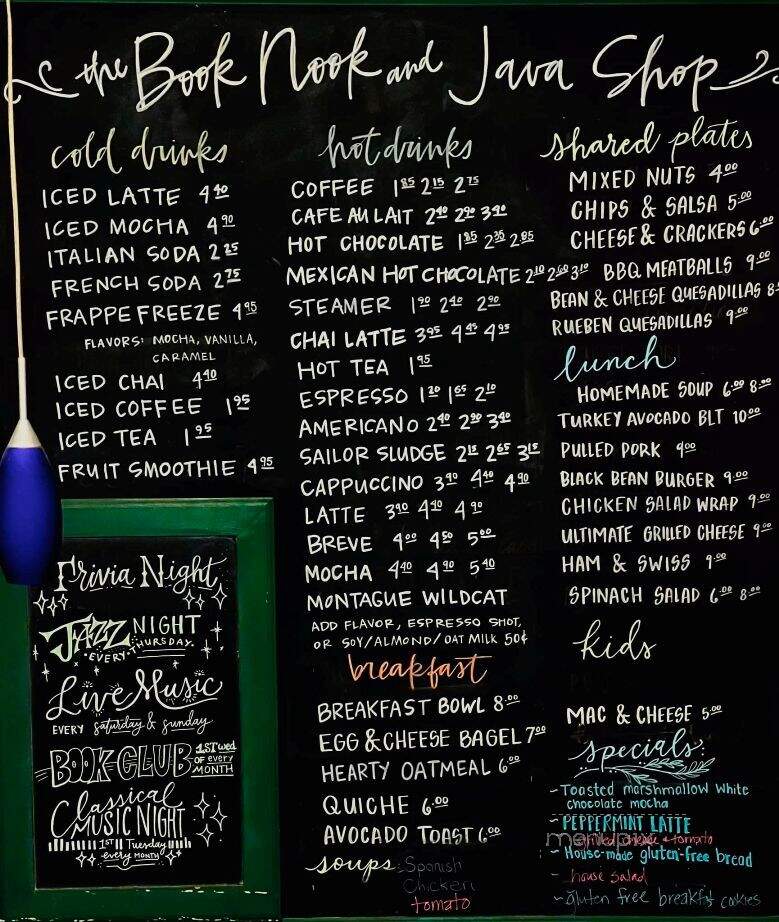 the Book Nook and Java Shop
cold drinks
ICED LATTE 4.40
ICED MOCHA 4.90
ITALIAN SODA 2.25
FRENCH SODA 2.75
FRAPPE FREEZE 4.95
FLAVORS: MOCHA, VANILLA,
CARAMEL
ICED CHAI 4.40
ICED COFFEE 1.95
ICED TEA 1.95
FRUIT SMOOTHIE 4.95
Trivia Night
JAZZ NIGHT
• EVERY • THURSDAY •
Live Music
EVERY saturday & sunday
BOOK CLUB 1ST wed
OF every
MONTH
Classical
MUSIC NIGHT
1ST Tuesday
every MONTH
hot drinks
COFFEE 1.85 2.15 2.75
CAFE AU LAIT 2.40 2.90 3.90
HOT CHOCOLATE 1.85 2.35 2.85
MEXICAN HOT CHOCOLATE 2.10 2.60 3.10
STEAMER 1.90 2.40 2.90
CHAI LATTE 3.95 4.45 4.95
HOT TEA 1.95
ESPRESSO 1.20 1.65 2.10
AMERICANO 2.40 2.90 3.40
SAILOR SLUDGE 2.15 2.65 3.15
CAPPUCCINO 3.90 4.40 4.90
LATTE 3.90 4.40 4.90
BREVE 4.00 4.50 5.00
MOCHA 4.40 4.90 5.40
MONTAGUE WILDCAT
ADD FLAVOR, ESPRESSO SHOT,
OR SOY/ALMOND/OAT MILK 50¢
breakfast
BREAKFAST BOWL 8.00
EGG & CHEESE BAGEL 7.00
HEARTY OATMEAL 6.00
QUICHE 6.00
AVOCADO TOAST 6.00
soups: Spanish
Chicken
tomato
shared plates
MIXED NUTS 4.00
CHIPS & SALSA 5.00
CHEESE & CRACKERS 6.00
BBQ MEATBALLS 9.00
BEAN & CHEESE QUESADILLAS 8
RUEBEN QUESADILLAS 9.00
lunch
HOMEMADE SOUP 6.00 8.00
TURKEY AVOCADO BLT 10.00
PULLED PORK 9.00
BLACK BEAN BURGER 9.00
CHICKEN SALAD WRAP 9.00
ULTIMATE GRILLED CHEESE 9.00
HAM & SWISS 9.00
SPINACH SALAD 6.00 8.00
kids
MAC & CHEESE 5.00
specials:
~Toasted marshmallow white
chocolate mocha
~PEPPERMINT LATTE
tomato
~House-made gluten-free bread
- house salad
~gluten free breakfast cookies